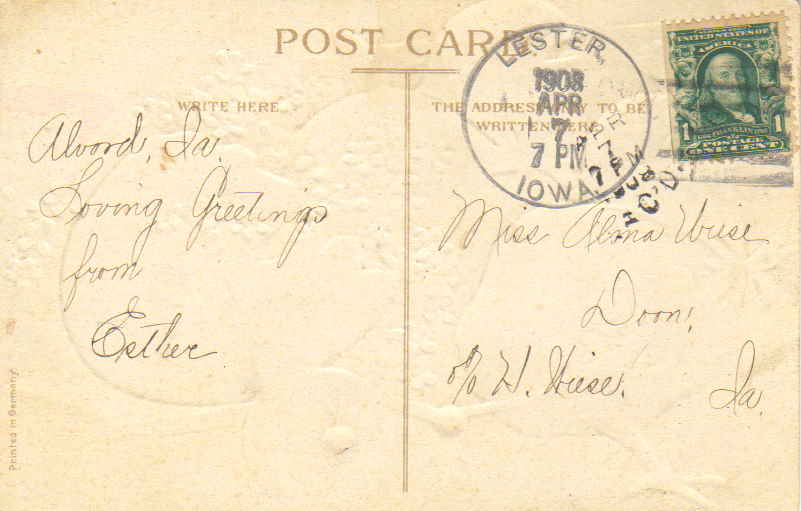 POST CARD
WRITE HERE
THE ADDRESS ONLY TO BE
WRITTEN HERE
LESTER,
1908
APR
7
7 PM
IOWA
7 PM
1908
REC'D.
UNITED STATES OF
AMERICA
1 1
FRANKLIN
POSTAGE
ONE CENT
Alvord, Ia.
Loving Greetings
from
Esther
Miss Alma Wiese
Doon,
c/o H. Wiese.
Ia.
Printed in Germany